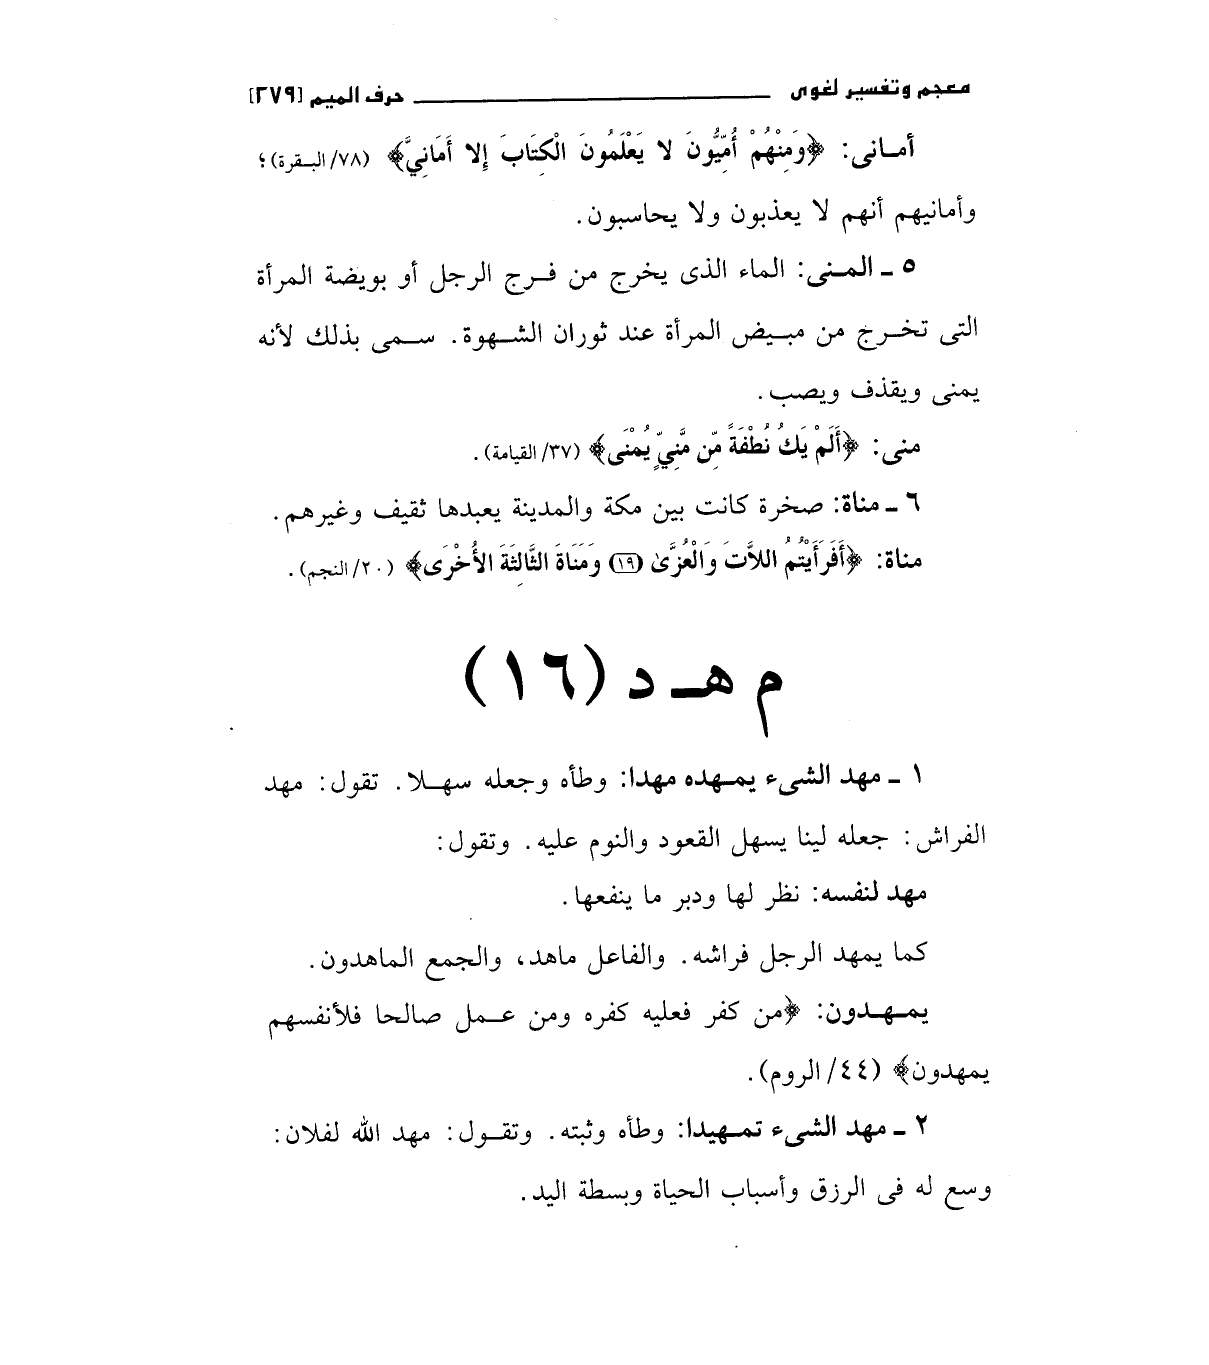 معجم وتفسير لغوى ــــــــــــــــ حرف الميم [٢٧٩]
أمـانى: ﴿وَمِنْهُمْ أُمِّيُّونَ لا يَعْلَمُونَ الْكِتَابَ إِلا أَمَانِيَّ﴾ (٧٨/ البـقرة)؛
وأمانيهم أنهم لا يعذبون ولا يحاسبون.
٥ ـ المـنى: الماء الذى يخرج من فـرج الرجل أو بويضة المرأة
التى تخـرج من مبـيض المرأة عند ثوران الشـهوة. سـمى بذلك لأنه
يمنى ويقذف ويصب.
منى: ﴿أَلَمْ يَكُ نُطْفَةً مِّن مَّنِيٍّ يُمْنَى﴾ (٣٧/ القيامة).
٦ ـ مناة: صخرة كانت بين مكة والمدينة يعبدها ثقيف وغيرهم.
مناة: ﴿أَفَرَأَيْتُمُ اللاَّتَ وَالْعُزَّىٰ (١٩) وَمَنَاةَ الثَّالِثَةَ الأُخْرَى﴾ (٢٠/ النجم).
م هـ د (١٦)
١ ـ مهد الشىء يمـهده مهدا: وطأه وجعله سهـلا. تقول: مهد
الفراش: جعله لينا يسهل القعود والنوم عليه. وتقول:
مهد لنفسه: نظر لها ودبر ما ينفعها.
كما يمهد الرجل فراشه. والفاعل ماهد، والجمع الماهدون.
يمـهـدون: ﴿من كفر فعليه كفره ومن عـمل صالحا فلأنفسهم
يمهدون﴾ (٤٤/ الروم).
٢ ـ مهد الشىء تمـهيدا: وطأه وثبته. وتقـول: مهد الله لفلان:
وسع له فى الرزق وأسباب الحياة وبسطة اليد.